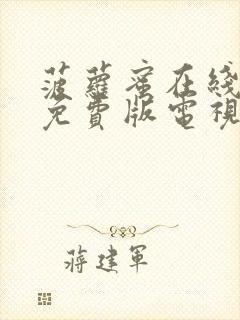 菠蘿蜜在綫
免費版電視
蔣建軍